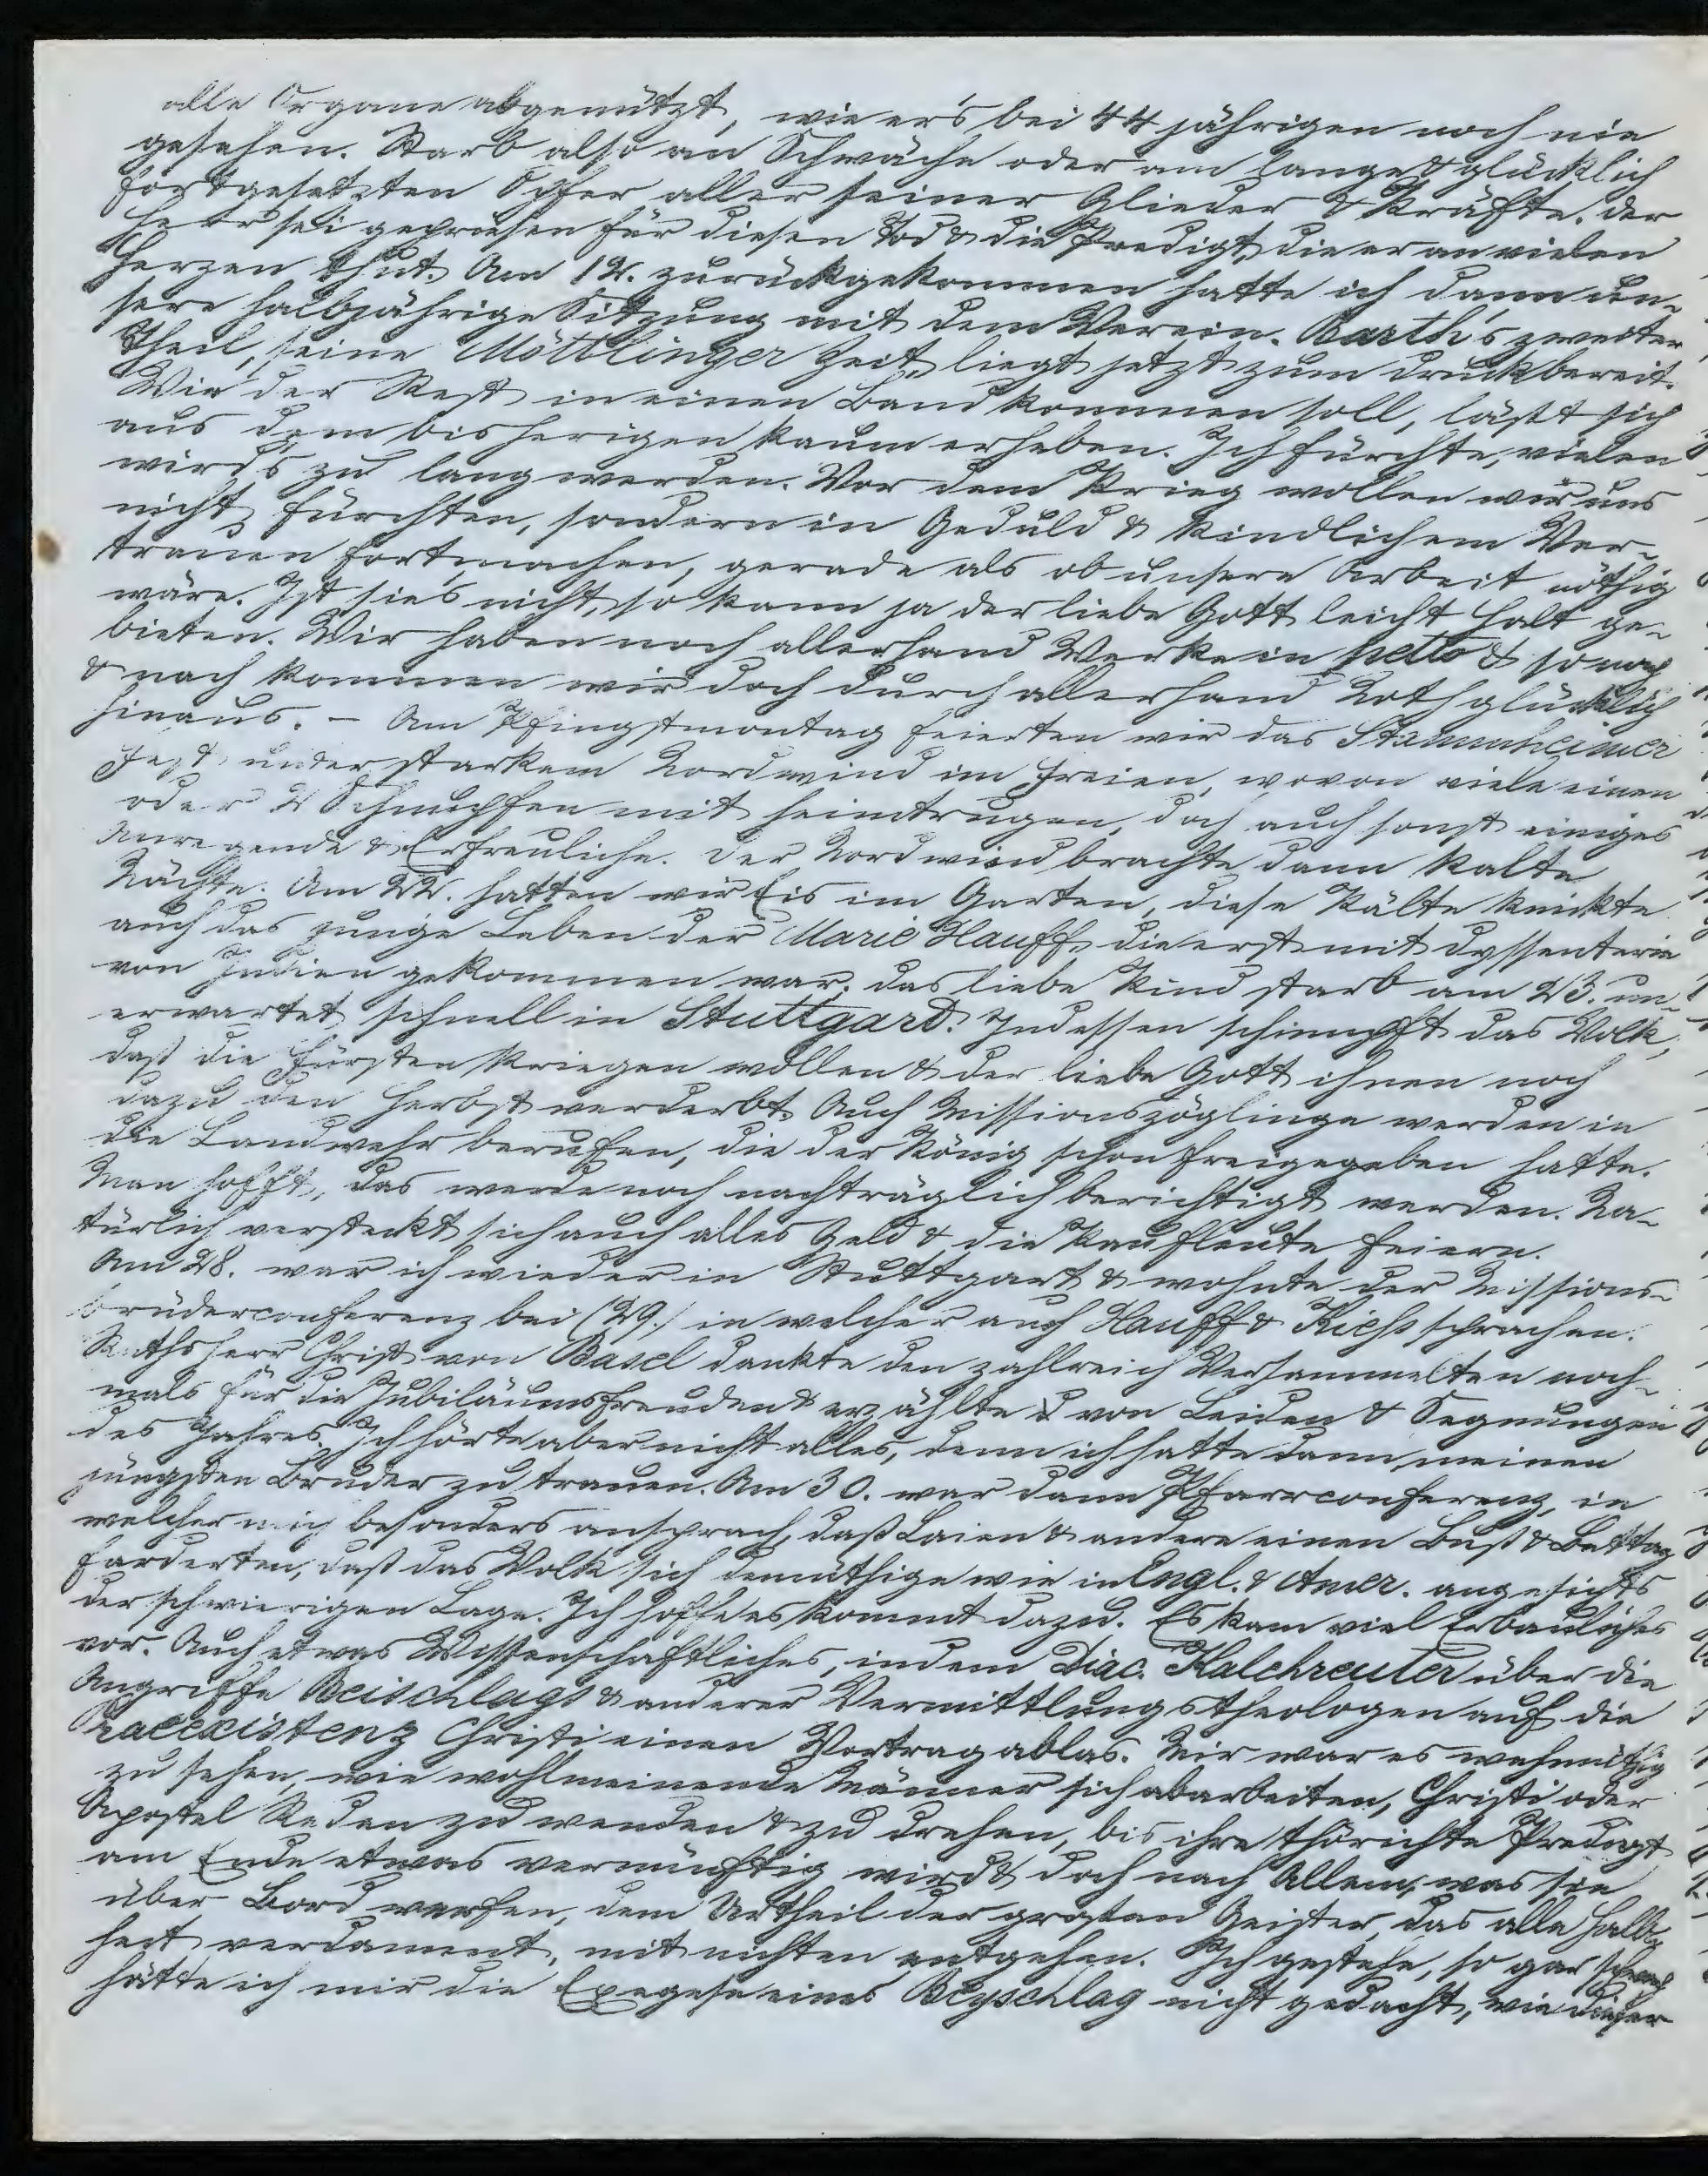 alle Organe abgenützt, wie er's bei 44 jährigen noch nie
gesehen. Starb also an Schwäche oder am lange & glücklich
fortgesetzten Opfer aller seiner Glieder & Kräfte. Der
Herr sei gepriesen für diesen Tod & die Predigt, die er an vielen
Herzen thut. Am 12. zurückgekommen hatte ich dann un-
sere halbjährige Sitzung mit dem Verein. Barth's zweiter
Theil, seine Möttlinger Zeit, liegt jetzt zum Druck bereit.
Wie der Rest in einen Band kommen soll, läßt sich
aus dem bisherigen kaum erheben. Ich fürchte, vielen
wird's zu lang werden. Vor dem Krieg wollen wir uns
nicht fürchten, sondern in Geduld & kindlichem Ver-
trauen fortmachen, gerade als ob unsere Arbeit nöthig
wäre. Ist sie's nicht, so kann ja der liebe Gott leicht Halt ge-
bieten. Wir haben noch allerhand Werke in petto & so nach
& nach kommen wir doch durch allerhand Noth glücklich
hinaus. – Am Pfingstmontag feierten wir das Stammheimer
Fest unter starkem Nordwind im Freien, wovon viele einen
oder 2 Schnupfen mit heimtrugen, doch auch sonst einiges
Anregende & Erfreuliche. Der Nordwind brachte dann kalte
Nächte. Am 22. hatten wir Eis im Garten, diese Kälte knickte
auch das junge Leben der Marie Hauff, die erst mit Dyssenterie
von Indien gekommen war. Das liebe Kind starb am 23. un-
erwartet schnell in Stuttgard. Indessen schimpft das Volk,
daß die Fürsten kriegen wollen & der liebe Gott ihnen noch
dazu den Herbst verderbt. Auch Missionszöglinge werden in
die Landwehr berufen, die der König schon freigegeben hatte.
Man hofft, das werde noch nachträglich berichtigt werden. Na-
türlich versteckt sich auch alles Geld & die Kaufleute feiern.
Am 28. war ich wieder in Stuttgart & wohnte der Missions-
brüderconferenz bei (29.) in welcher auch Hauff & Kiess sprachen.
Rathsherr Christ von Basel dankte den zahlreich Versammelten noch-
mals für die Jubiläumsfreuden & erzählte von Leiden & Segnungen
des Jahres. Ich hörte aber nicht alles, denn ich hatte dann meinen
jüngsten Bruder zu trauen. Am 30. war dann Pfarrconferenz, in
welcher mich besonders ansprach, daß Laien & andere einen Buß & Bettag
forderten, daß das Volk sich demüthige wie in Engl. & Amer. angesichts
der schwierigen Lage. Ich hoffe es kommt dazu. Es kam viel Erbauliches
vor. Auch etwas Wissenschaftliches, indem Diac. Kalchreuter über die
Angriffe Beischlags & anderer Vermittlungstheologen auf die
Praeexistenz Christi einen Vortrag ablas. Mir war es wehmüthig
zu sehen, wie wohlmeinende Männer sich abarbeiten, Christi oder
Apostel Reden zu wenden & zu drehen, bis ihre thörichte Predigt
am Ende etwas vernünftig wird & doch nach Allem, was sie
über Bord werfen, dem Urtheil der großen Geister, das alle Halb-
heit verdammt, mit nichten entgehen. Ich gestehe, so gar schwach
hätte ich mir die Exegese eines Beyschlag nicht gedacht, wie dieser